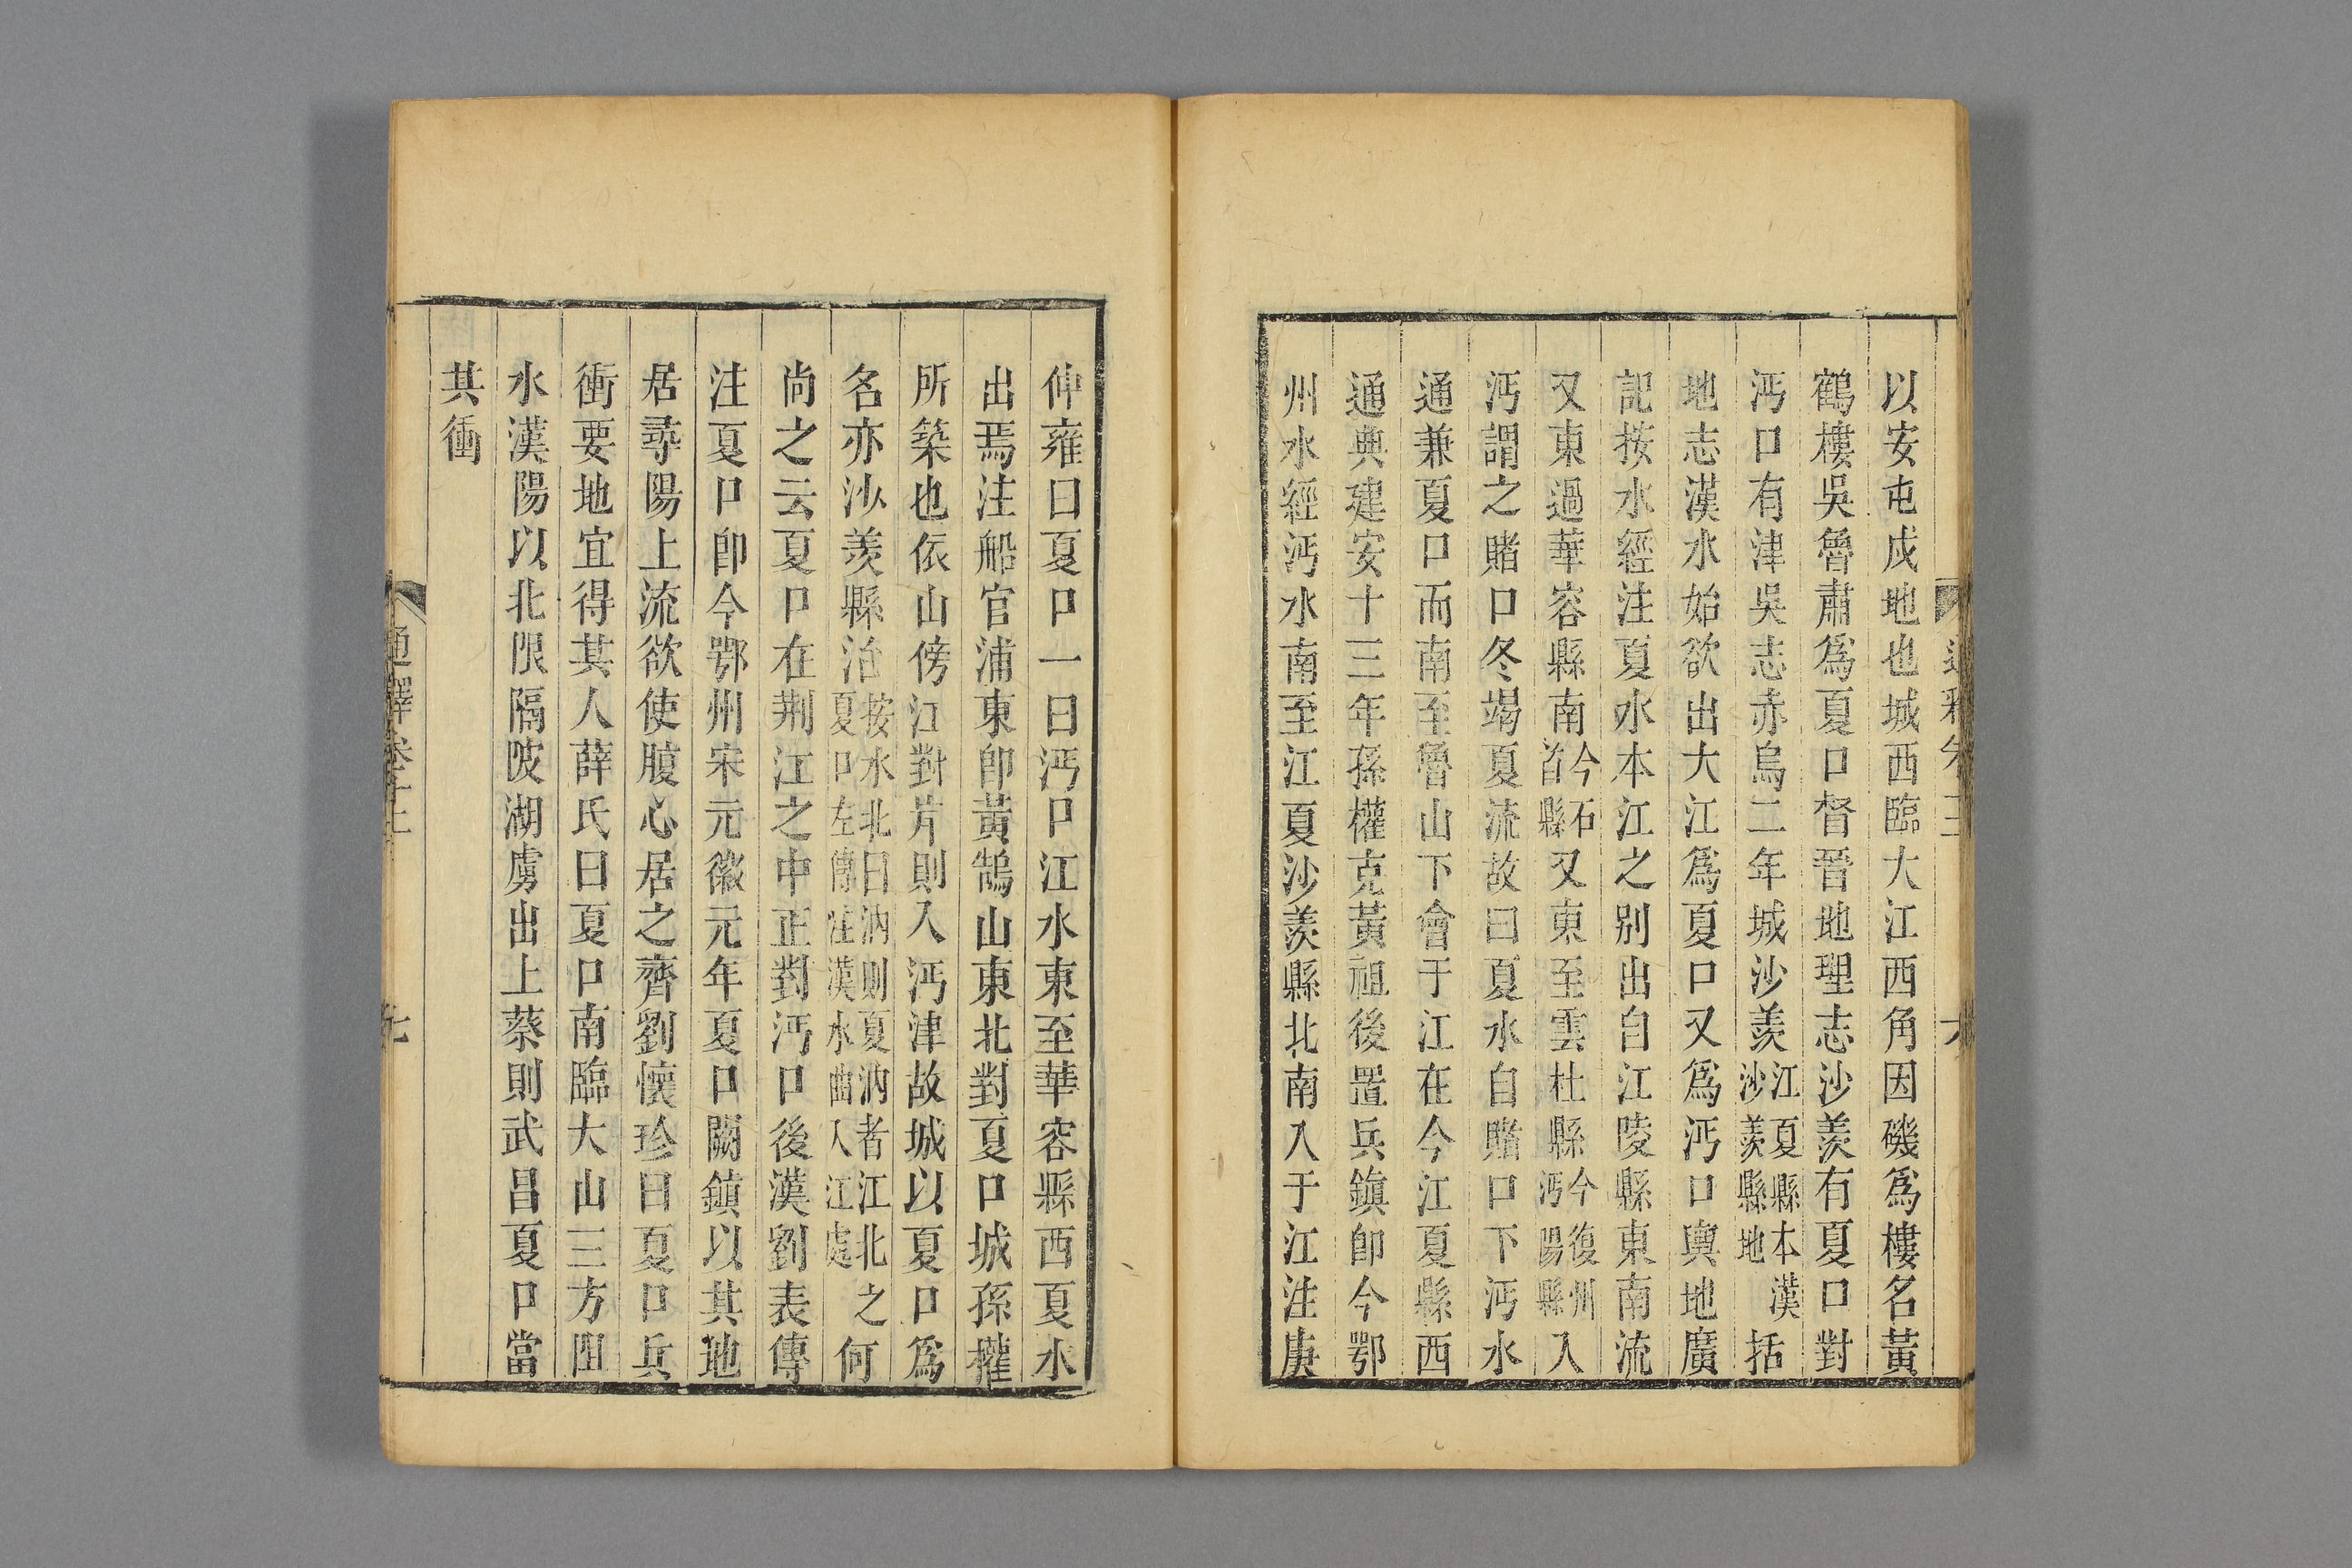 以安屯戍地也城西臨大江西角因磯爲樓名黃
鶴樓吳魯肅爲夏口督晉地理志沙羨有夏口對
沔口有津吳志赤烏二年城沙羨江夏縣本漢沙羨縣地括
地志漢水始欲出大江爲夏口又爲沔口輿地廣
記按水經注夏水本江之别出自江陵縣東南流
又東過華容縣南今石首縣又東至雲杜縣今復州沔陽縣入
沔謂之賭口冬竭夏流故曰夏水自賭口下沔水
通兼夏口而南至魯山下會于江在今江夏縣西
通典建安十三年孫權克黃祖後置兵鎮卽今鄂
州水經沔水南至江夏沙羨縣北南入于江注庾
仲雍曰夏口一曰沔口江水東至華容縣西夏水
出焉注船官浦東卽黃鵠山東北對夏口城孫權
所築也依山傍江對片則入沔津故城以夏口爲
名亦沙羨縣治按水北曰汭則夏汭者江北之夏口左傳注漢水曲入江處何
尚之云夏口在荆江之中正對沔口後漢劉表傳
注夏口卽今鄂州宋元徽元年夏口闕鎮以其地
居尋陽上流欲使腹心居之齊劉懷珍曰夏口兵
衝要地宜得其人薛氏曰夏口南臨大山三方阻
水漢陽以北限隔陂湖虜出上蔡則武昌夏口當
其衝
通釋卷十二
九